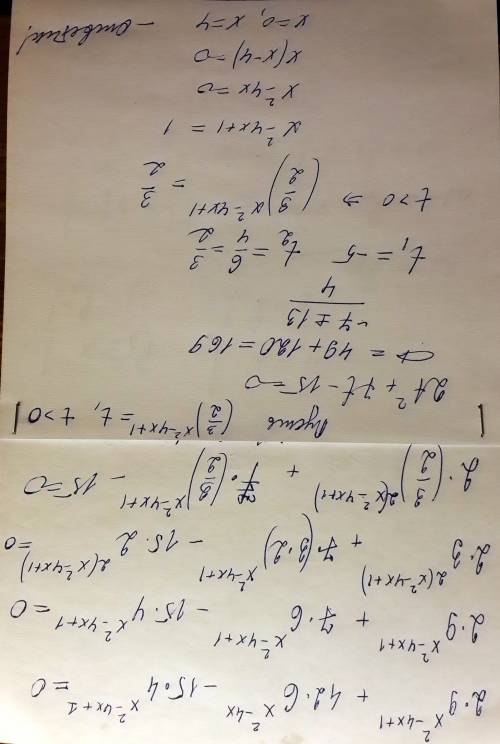 2·9^(x²-4x+1) + 42·6^(x²-4x) - 15·4^(x²-4x+1) = 0
2·9^(x²-4x+1) + 7·6^(x²-4x+1) - 15·4^(x²-4x+1) = 0
2·3^(2(x²-4x+1)) + 7·(3·2)^(x²-4x+1) - 15·2^(2(x²-4x+1)) = 0
2·(3/2)^(2(x²-4x+1)) + 7·(3/2)^(x²-4x+1) - 15 = 0
Пусть (3/2)^(x²-4x+1) = t, t>0
2t² + 7t - 15 = 0
D = 49 + 120 = 169
(-7 ± 13)/4
t₁ = -5 t₂ = 6/4 = 3/2
t>0 ⇒ (3/2)^(x²-4x+1) = 3/2
x²-4x+1 = 1
x²-4x = 0
x(x-4) = 0
x=0, x=4 - ответик!